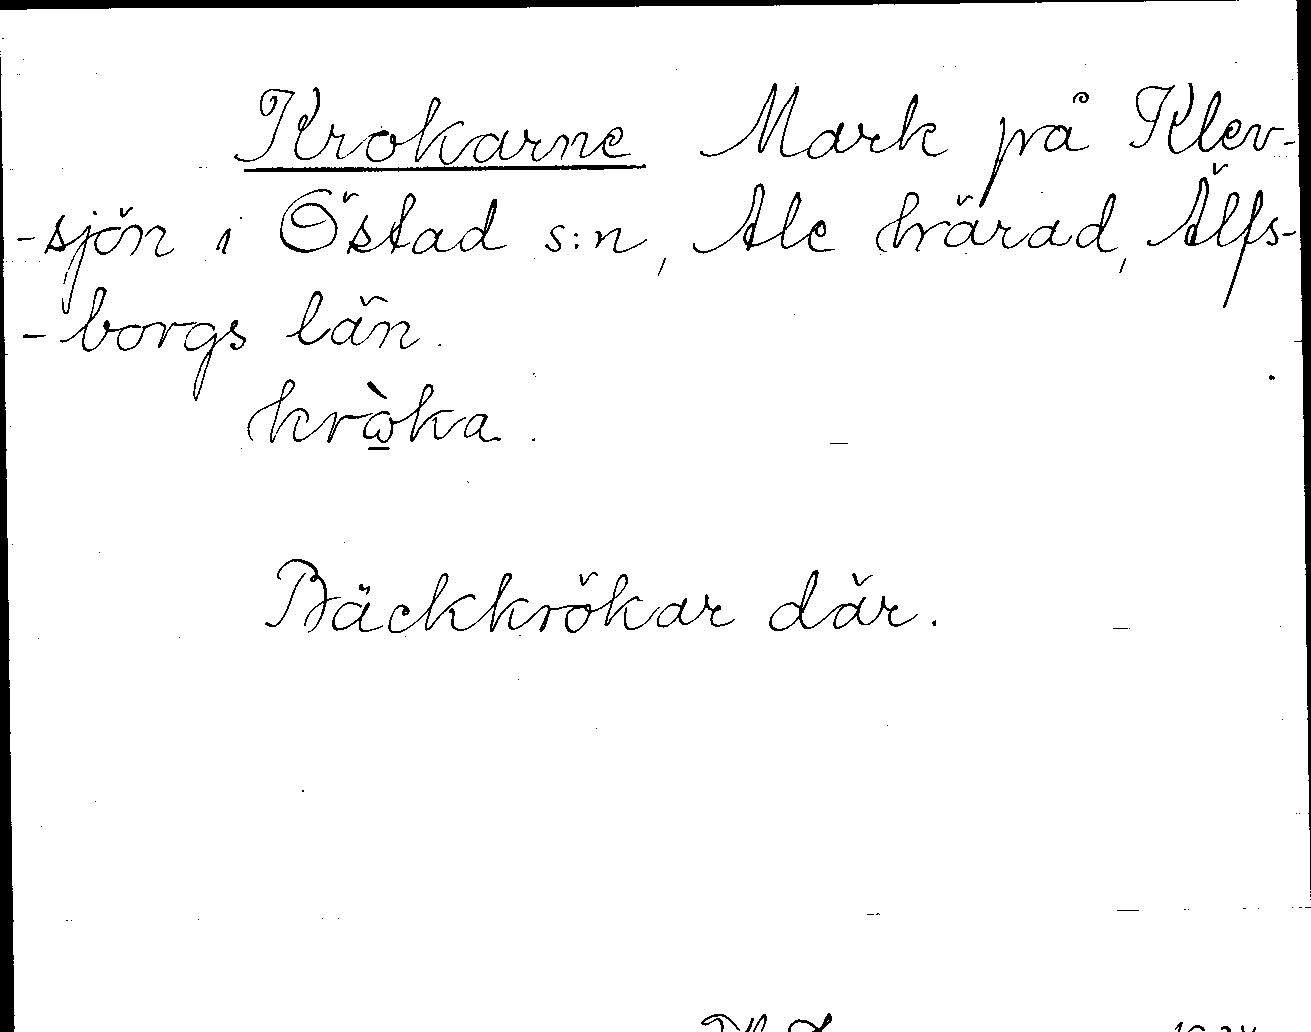 Krokarne Mark på Klev-
-sjön i Östad s:n, Ale härad, Älfs-
-borgs län.
krὼ̲ka.
Bäckkrökar där.